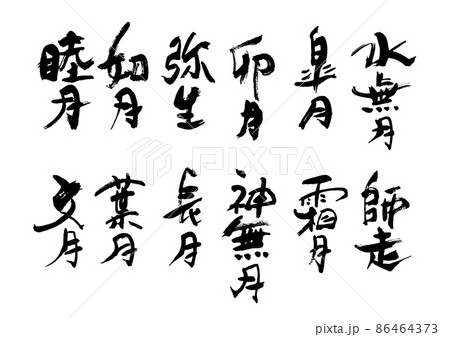 睦月
如月
弥生
卯月
皐月
水無月
文月
葉月
長月
神無月
霜月
師走
PIXTA
pixta.jp - 86464373